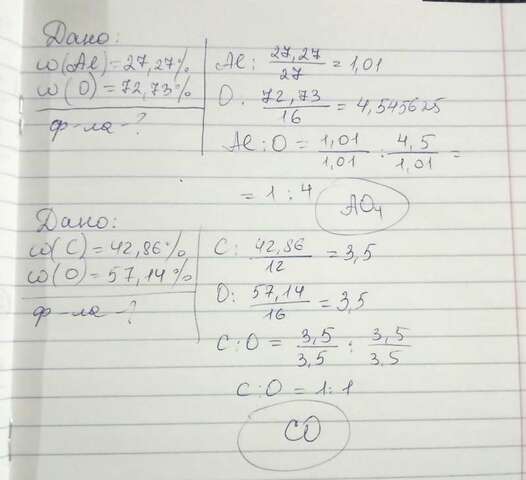 Дано:
ω(Al)=27,27%
ω(O)=72,73%
ф-ла-?
Al: 27,27/27 = 1,01
O: 72,73/16 = 4,545625
Al:O = 1,01/1,01 : 4,5/1,01 =
= 1 : 4
AO₄
Дано:
ω(C)=42,86%
ω(O)=57,14%
ф-ла-?
C: 42,86/12 = 3,5
O: 57,14/16 = 3,5
C:O = 3,5/3,5 : 3,5/3,5
C:O = 1:1
CO